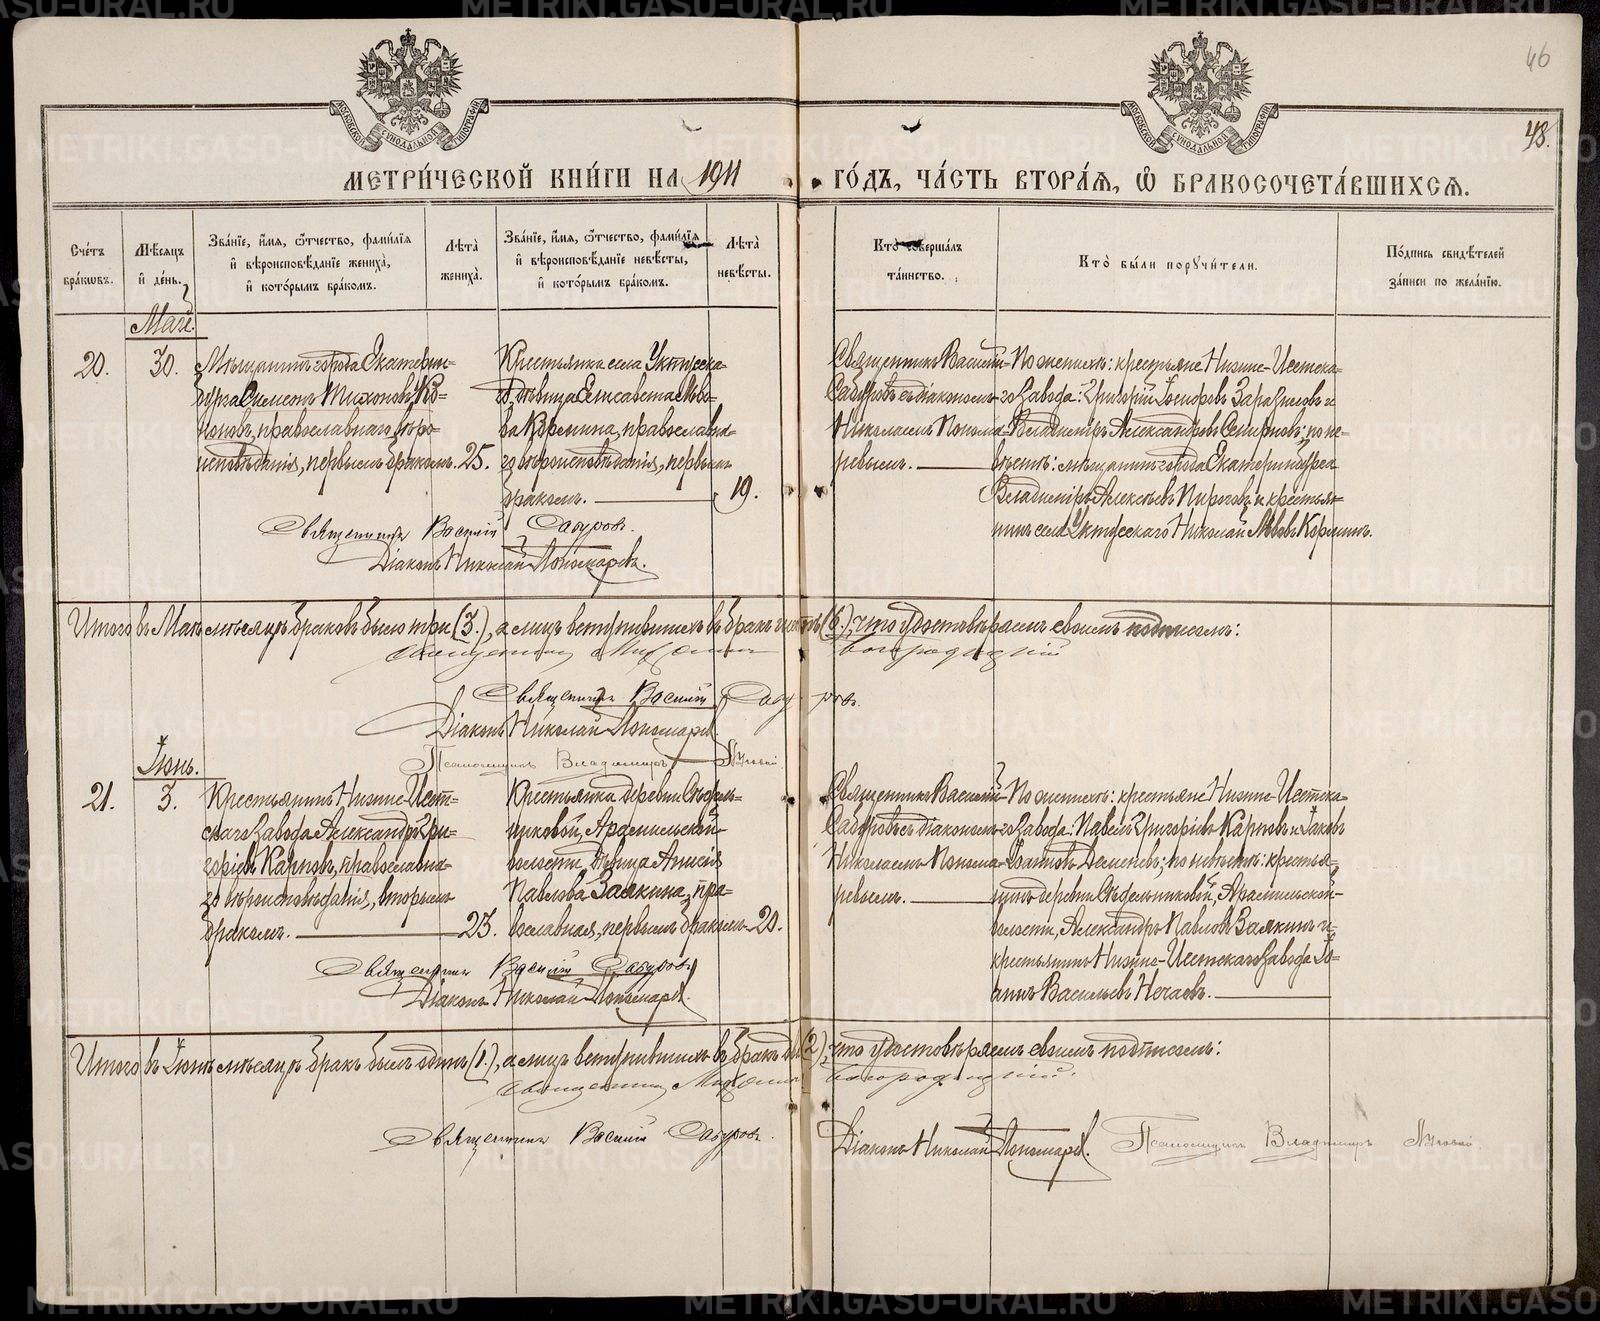 46
48.
МОСКОВСКОЙ СѴНОДАЛЬНОЙ ТИПОГРАФІИ
МОСКОВСКОЙ СѴНОДАЛЬНОЙ ТИПОГРАФІИ
МЕТРИ́ЧЕСКОЙ КНИ́ГИ НА 1911 ГО́ДЪ, ЧА́СТЬ ВТОРА́Ѧ, Ѡ҆ БРАКОСОЧЕТА́ВШИХСѦ.
Сче́тъ бра́кѡвъ.
Мѣ́сяцъ и҆ де́нь.
Зва́нїе, и҆́мѧ, ѻ҆́тчество, фами́лїѧ и҆ вѣроисповѣ́данїе жениха̀, и҆ кото́рымъ бра́комъ.
Лѣ́та жениха̀.
Зва́нїе, и҆́мѧ, ѻ҆́тчество, фами́лїѧ и҆ вѣроисповѣ́данїе невѣ́сты, и҆ кото́рымъ бра́комъ.
Лѣ́та невѣ́сты.
Кто̀ соверша́лъ та́инство.
Кто̀ бы́ли порꙋчи́тели.
По́дпись свидѣ́телей за́писи по жела́нїю.
Май.
20.
30.
Мѣщанинъ города Екатерин-
бурга Симеонъ Тихоновъ Ко-
ноновъ, православнаго вѣро-
исповѣданія, первымъ бракомъ.
25.
Крестьянка села Уктусска-
го, дѣвица Елисавета Львo-
ва Кормина, православна-
го вѣроисповѣданія, первымъ
бракомъ.
19.
Священникъ Василій
Сабуровъ съ діакономъ
Николаемъ Понома-
ревымъ.
По женихѣ: крестьяне Нижне-Исетска-
го завода: Григорій Іосифовъ Заразиловъ и
Владиміръ Александровъ Смирновъ; по не-
вѣстѣ: мѣщанинъ города Екатеринбурга
Владиміръ Алексѣевъ Пироговъ и крестья-
нинъ села Уктусскаго Николай Львовъ Корминъ.
Священникъ Василій Сабуровъ.
Діаконъ Николай Пономаревъ.
Итого въ Маѣ мѣсяцѣ браковъ было три (3.), а лицъ вступившихъ въ бракъ шесть (6.), что удостовѣряемъ своимъ подписомъ:
Священникъ Михаилъ Богородицкій
Священникъ Василій Сабуровъ.
Діаконъ Николай Пономаревъ.
Псаломщикъ Владиміръ
Іюнь.
21.
3.
Крестьянинъ Нижне-Исет-
скаго завода Александръ Гри-
горіевъ Карповъ, православна-
го вѣроисповѣданія, вторымъ
бракомъ.
23.
Крестьянка деревни Сѣдель-
никовой, Арамильской
волости, дѣвица Анисія
Павлова Заякина, пра-
вославная, первымъ бракомъ.
20.
Священникъ Василій
Сабуровъ съ діакономъ
Николаемъ Понома-
ревымъ.
По женихѣ: крестьяне Нижне-Исетска-
го завода: Павелъ Григоріевъ Карповъ и Іаковъ
Іоанновъ Дементевъ; по невѣстѣ: крестья-
нинъ деревни Сѣдельниковой, Арамильской
волости, Александръ Павловъ Заякинъ и
крестьянинъ Нижне-Исетскаго завода Іо-
аннъ Васильевъ Нечаевъ.
Священникъ Василій Сабуровъ
Діаконъ Николай Пономаревъ.
Итого въ Іюнѣ мѣсяцѣ бракъ былъ одинъ (1.), а лицъ вступившихъ въ бракъ два (2.), что удостовѣряемъ своимъ подписомъ:
Священникъ Михаилъ Богородицкій.
Священникъ Василій Сабуровъ.
Діаконъ Николай Пономаревъ.
Псаломщикъ Владиміръ
METRIKI.GASO-URAL.RU